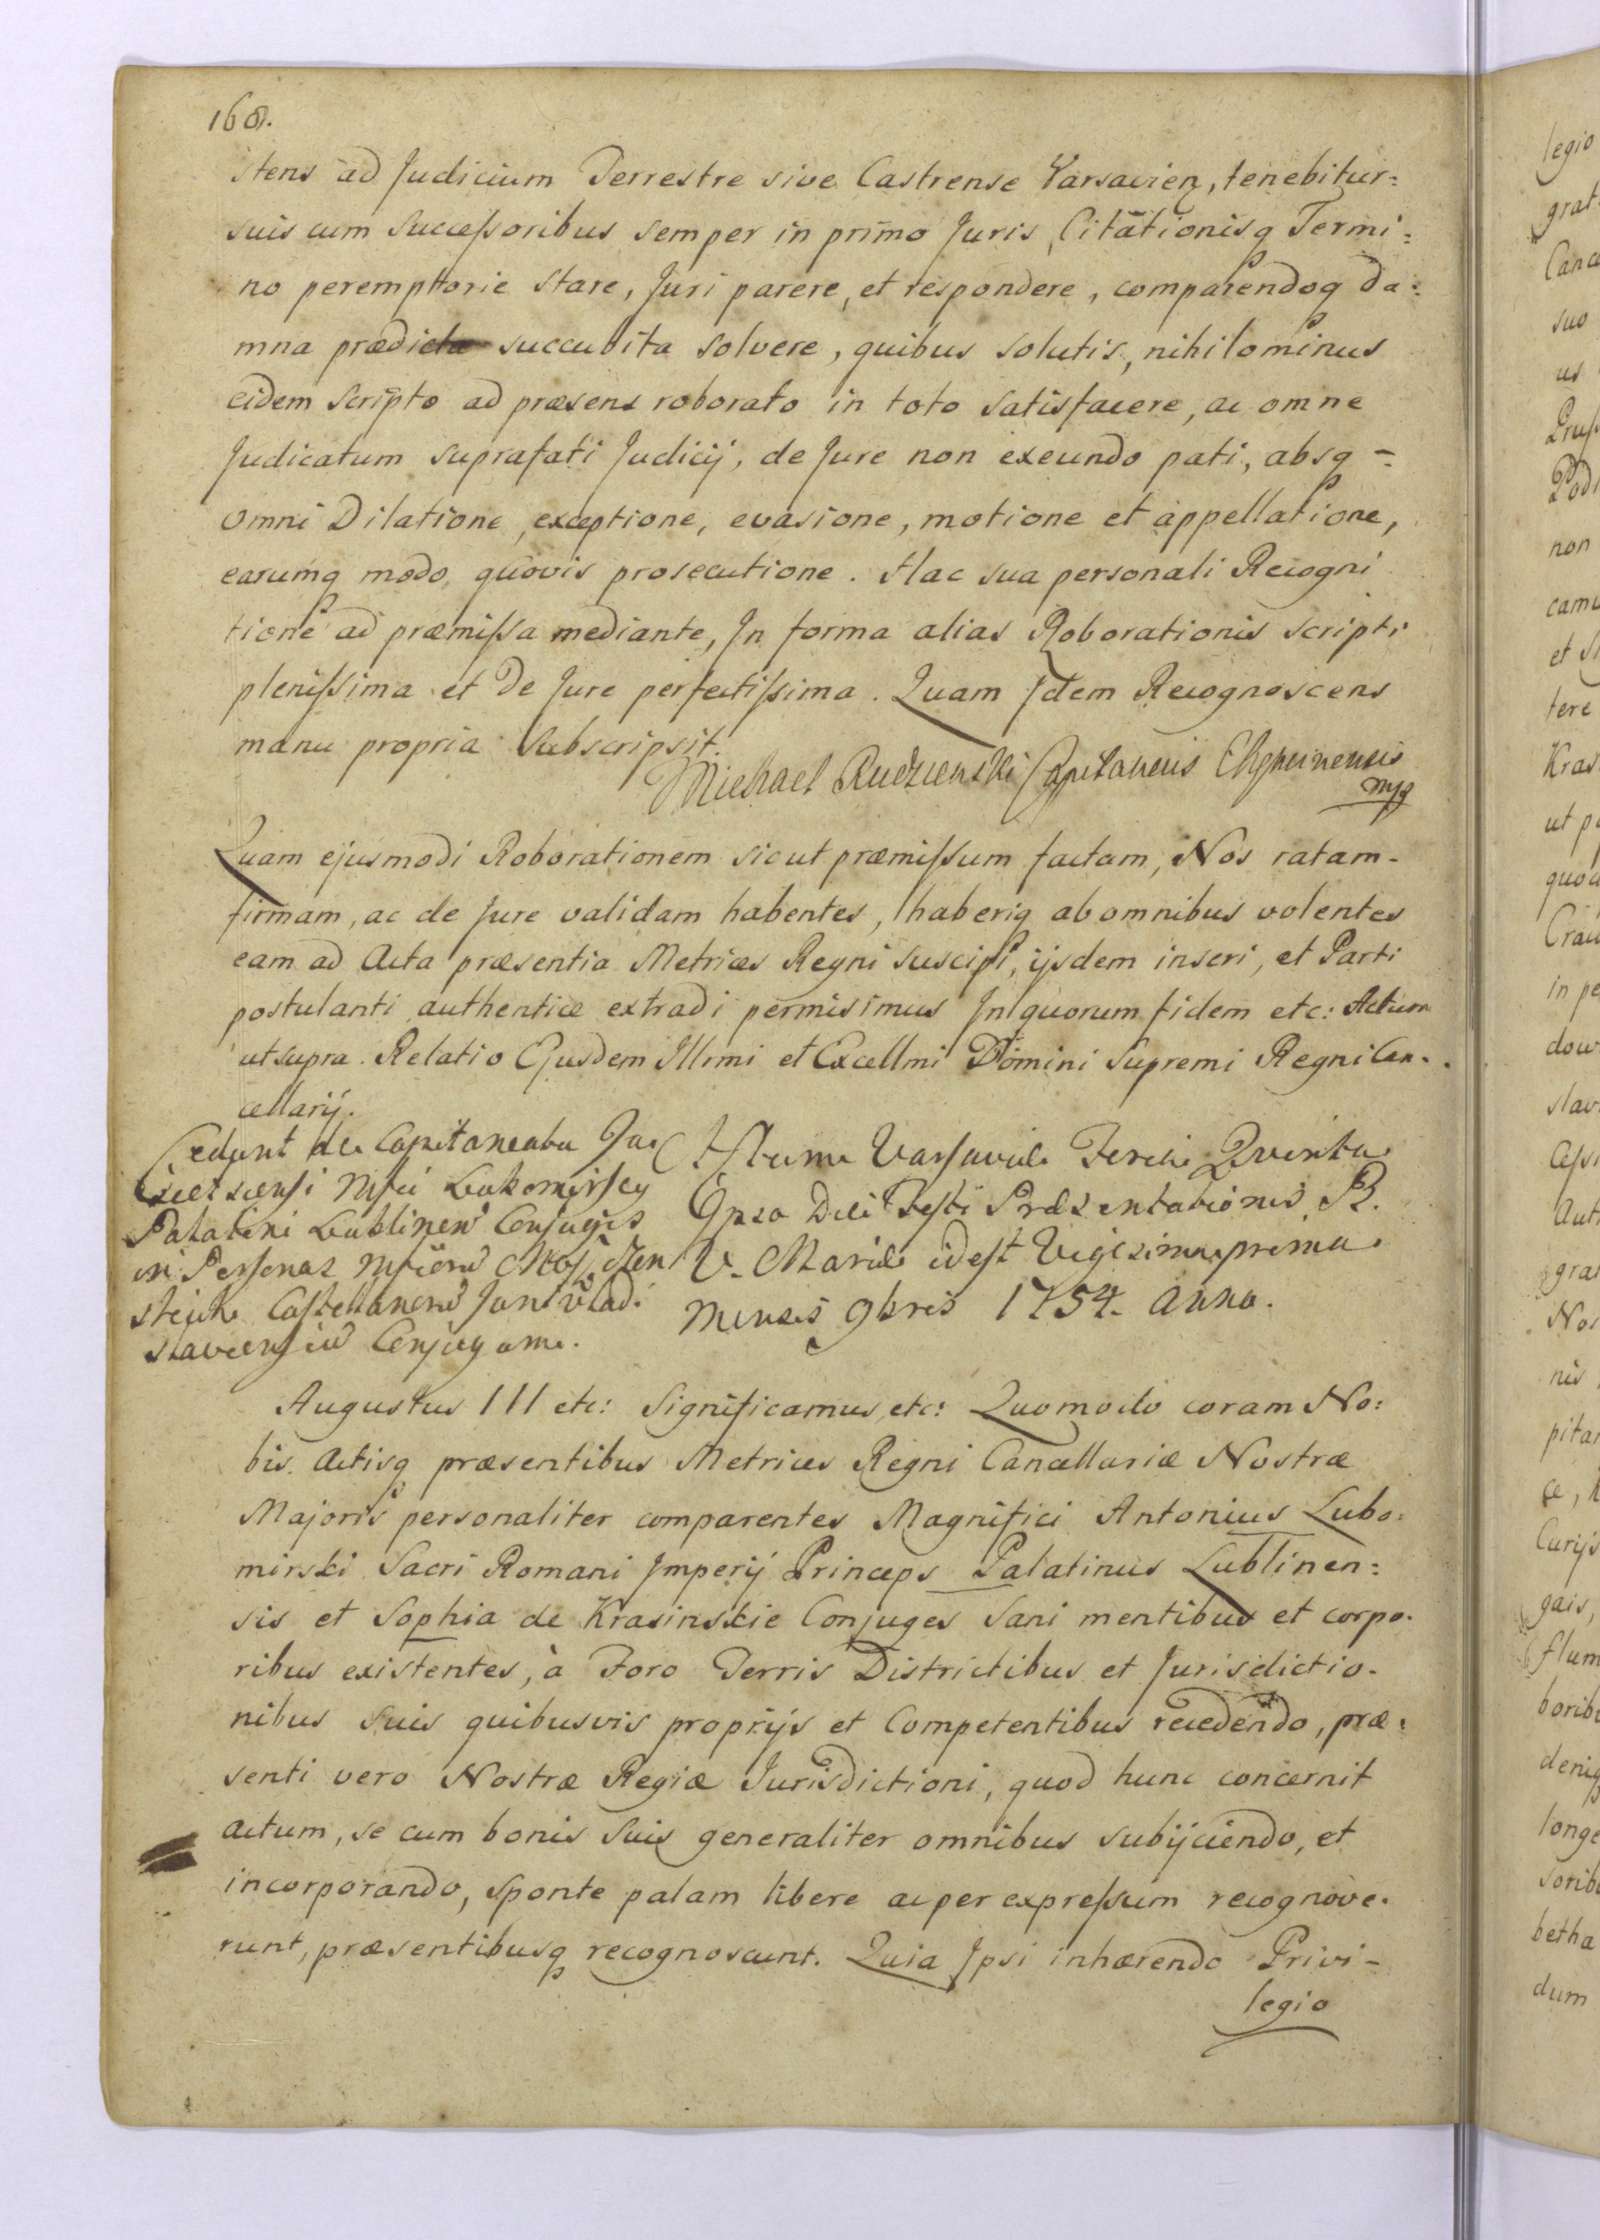 168.
stens ad Judicium Terrestre sive Castrense Varsavien, tenebitur=
suis cum Successoribus semper in primo Juris, Citationisq Termi=
no peremptorie stare, Juri parere, et respondere, comparendoq da=
mna prædicta succubita solvere, quibus solutis, nihilominus
eidem scripto ad præsens roborato in toto satisfacere, ac omne
Judicatum suprafati Judicij, de Jure non exeundo pati, absq =
omni Dilatione, exceptione, evasione, motione et appellatione,
earumq modo quovis prosecutione. Hac sua personali Recogni
tione ad præmissa mediante, In forma alias Roborationis scripti
plenissima et de Jure perfectissima. Quam Idem Recognoscens
manu propria subscripsit.
Michael Rudzienski Capitaneus Chyneinensis
mpp
Quam ejusmodi Roborationem sicut præmissum factam, Nos ratam-
firmam, ac de Jure validam habentes, haberiq ab omnibus volentes
eam ad Acta præsentia Metrices Regni suscipi, ijsdem inseri, et Parti
postulanti authentice extradi permisimus In quorum fidem etc: Actum
ut supra. Relatio Ejusdem Illmi et Excellmi Domini Supremi Regni Can-
cellarij.
Cedunt de Capitaneatu
Mfici Lubomirscy
Palatini Lublinen Conjuges
in Personas Mficorū
Castellanorū Junivladi
slaviensiū Conjugum.
Actum Varsaviæ Feria Quinta
Ipso Die Festi Præsentationis B.
V. Mariæ idest Vigesima prima
Mensis 9bris 1754. Anno.
Augustus III etc: Significamus, etc: Quomodo coram No=
bis Actisq præsentibus Metrices Regni Cancellariæ Nostræ
Majoris personaliter comparentes Magnifici Antonius Lubo=
mirski Sacri Romani Imperij Princeps Palatinus Lublinen=
sis et Sophia de Krasinskie Conjuges Sani mentibus et corpo-
ribus existentes, à Foro Terris Districtibus et Jurisdictio-
nibus suis quibusvis proprijs et Competentibus recedendo, præ=
senti vero Nostræ Regiæ Jurisdictioni, quod hunc concernit
actum, se cum bonis suis generaliter omnibus subijciendo, et
incorporando, sponte palam libere ac per expressum recognove-
runt, præsentibusq recognoscunt. Quia Ipsi inhærendo Privi-
legio
legio
Canc
suo
us
non
et
tere
Kras
ut p
in pe
slav
gra
Nos
nis
pita
Curijs
gais,
flum
longe
betha
dum